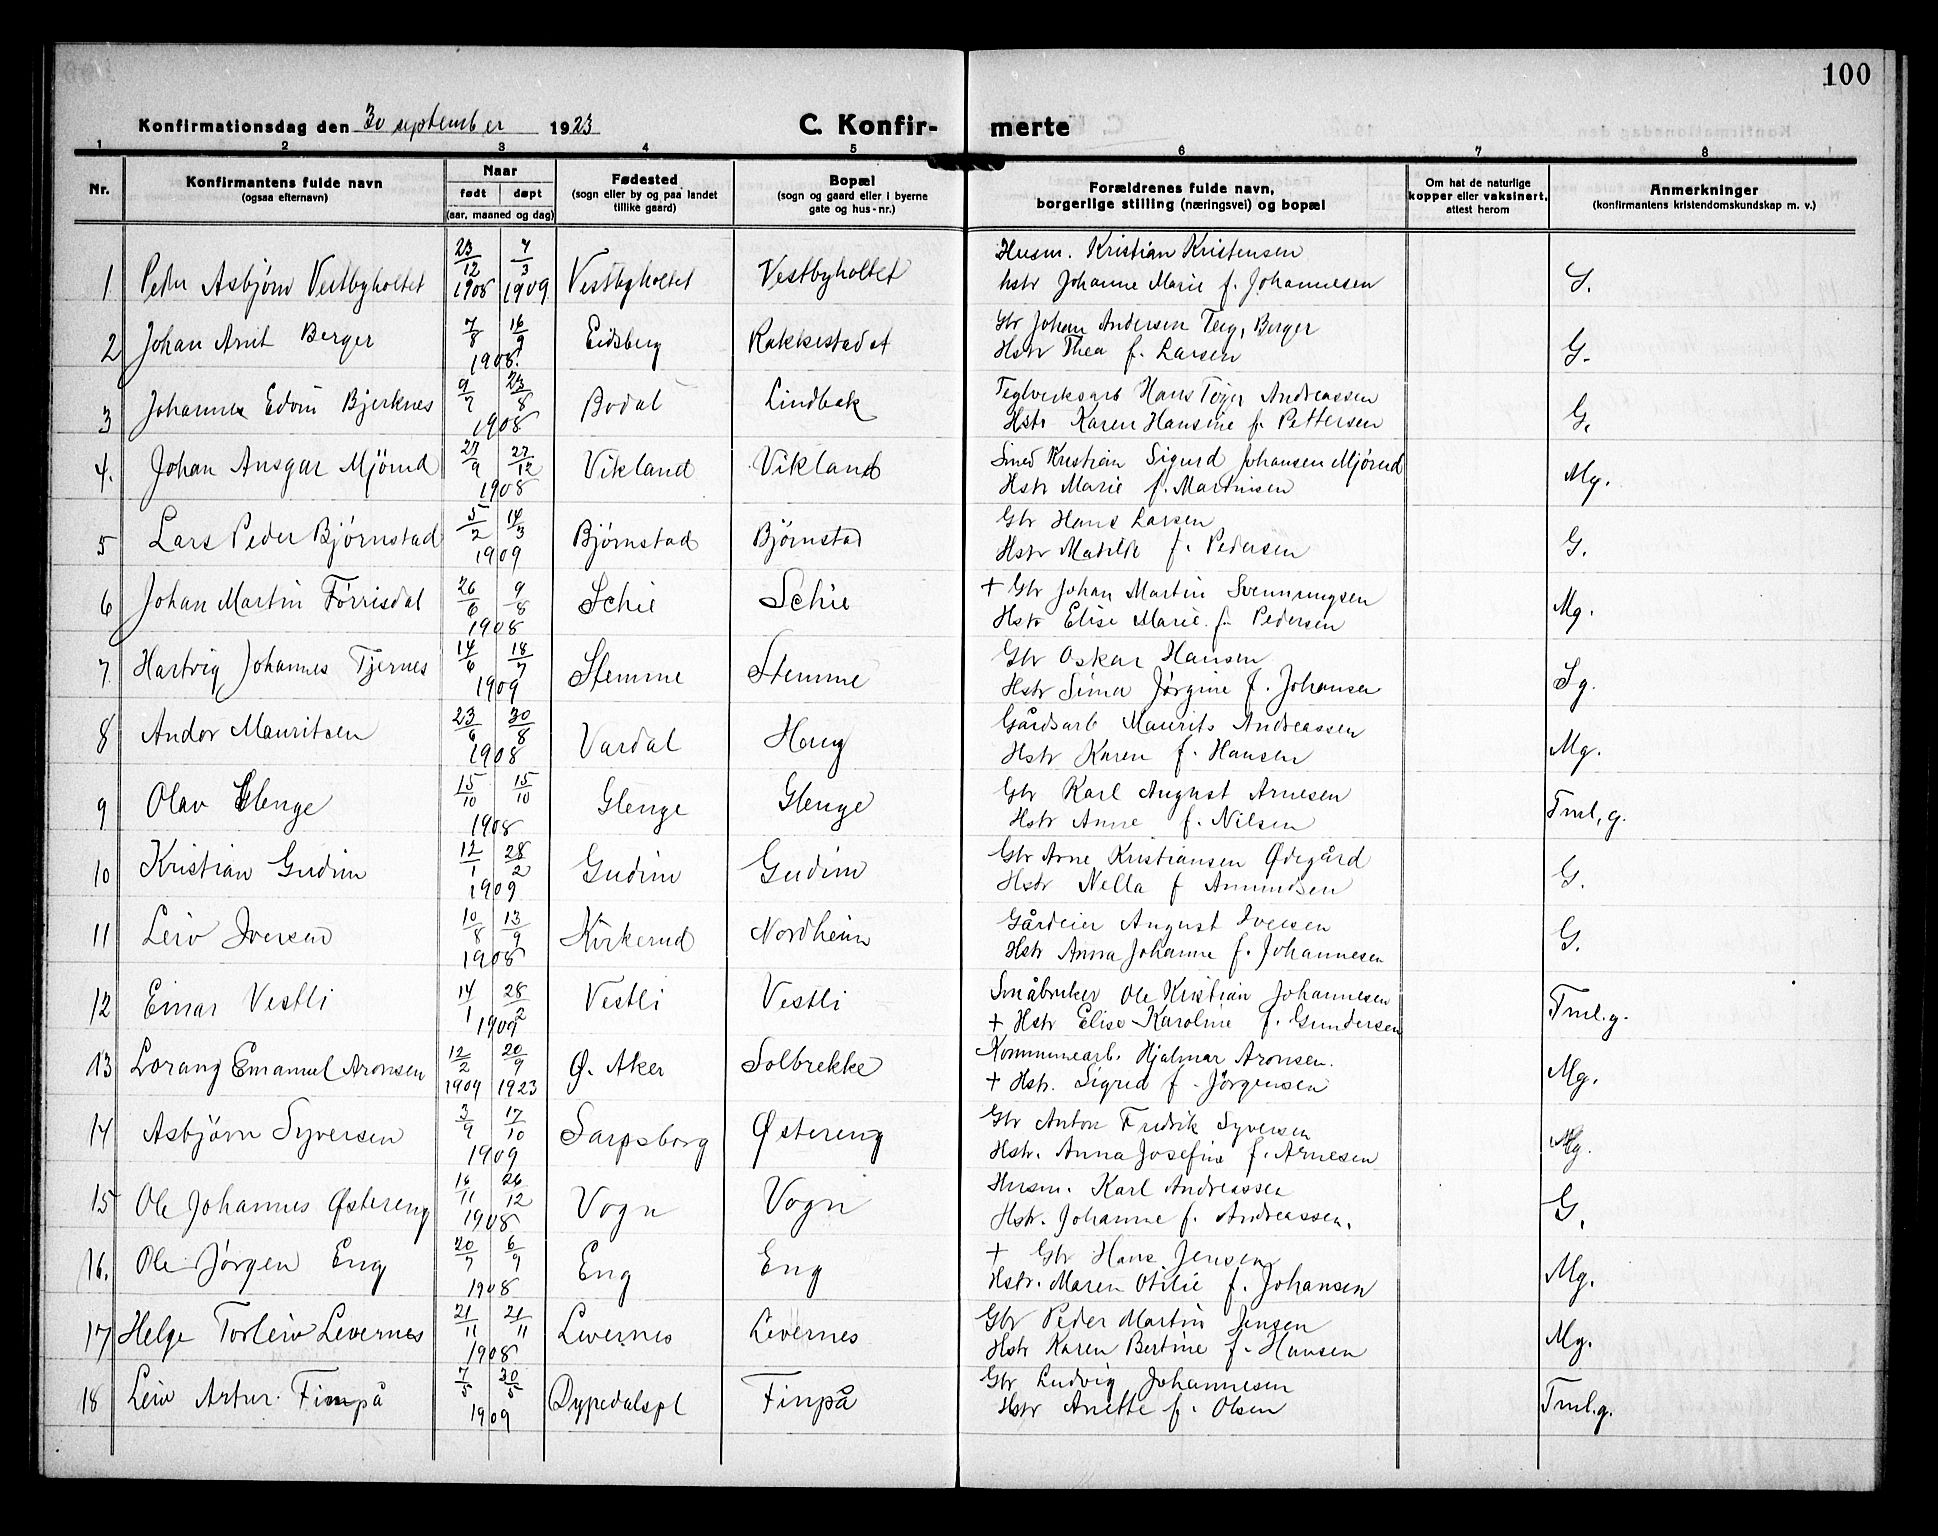 100
Konfirmationsdag den 30 september 1923
C. Konfirmerte
1 2 3 4 5 6 7 8
Nr.
Konfirmantens fulde navn
(ogsaa efternavn)
Naar
født døpt
(aar, maaned og dag)
Fødested
(sogn eller by og paa landet
tillike gaard)
Bopæl
(sogn og gaard eller i byerne
gate og hus-nr.)
Forældrenes fulde navn,
borgerlige stilling (næringsvei) og bopæl
Om hat de naturlige
kopper eller vaksinert,
attest herom
Anmerkninger
(konfirmantens kristendomskundskap m. v.)
1 Peder Asbjørn Vestbyholtet 23/12 1908 7/3 1909 Vestbyholtet Vestbyholtet Husm. Kristian Kristensen
hstr Johanne Marie f. Johannesen S.
2 Johan Arnt Berger 7/8 16/9 1908 Eidsberg Rakkestadet Gbr Johan Andersen Teig, Berger
Hstr Thea f. Larsen G.
3 Johannes Edvin Bjerknes 9/7 23/8 1908 Bodal Lindbæk Teglverksarb Hans Tøger Andreassen
Hstr Karen Hansine f. Pettersen G.
4. Johan Ansgar Mjørud 27/9 27/12 1908 Vikland Vikland Smed Kristian Sigurd Johansen Mjørud
Hstr Marie f. Martinsen Mg.
5 Lars Peder Bjørnstad 5/2 14/3 1909 Bjørnstad Bjørnstad Gbr Hans Larsen
Hstr Matilde f. Pedersen G.
6 Johan Martin Førrisdal 26/6 9/8 1908 Schie Schie + Gbr Johan Martin Svenningsen
Hstr Elise Marie f. Pedersen Mg.
7 Hartvig Johannes Tjernes 14/6 18/7 1909 Stemme Stemme Gbr Oskar Hansen
Hstr Sina Jørgine f. Johansen Sg.
8 Andor Mauritsen 23/6 30/8 1908 Vardal Haug Gårdsarb Maurits Andreassen
Hstr Karen f. Hansen Mg.
9 Olav Glenge 15/10 15/10 1908 Glenge Glenge Gbr Karl August Arnesen
Hstr Anne f. Nilsen Tml, g.
10 Kristian Gudim 12/1 28/2 1909 Gudim Gudim Gbr Arne Kristiansen Ødegård
Hstr Nella f Amundsen G.
11 Leiv Iversen 10/8 13/9 1908 Kirkerud Nordheim Gårdeier August Iversen
Hstr Anna Johanne f. Johannesen G.
12 Einar Vestli 14/1 28/2 1909 Vestli Vestli Småbruker Ole Kristian Johannesen
+ Hstr Elise Karoline f. Gundersen Tml.g.
13 Lorang Emanuel Aronsen 12/2 1909 20/9 1923 Ø. Aker Solbrekke Kommunearb. Hjalmar Aronsen.
+ Hstr. Sigrid f. Jørgensen Mg.
14 Asbjørn Syversen 3/9 17/10 1909 Sarpsborg Østereng Gbr Anton Fredrik Syversen
Hstr. Anna Josefine f. Arnesen Mg.
15 Ole Johannes Østereng 16/11 26/12 1908 Vogn Vogn Husm. Karl Andreassen
Hstr. Johanne f. Andreassen. G.
16. Ole Jørgen Eng 20/7 6/9 1908 Eng Eng + Gbr Hans Jensen
Hstr. Maren Otilie f. Johansen Mg.
17 Helge Torleiv Levernes 21/11 21/11 1908 Levernes Levernes Gbr Peder Martin Jensen
Hstr Karen Bertine f. Hansen Mg.
18 Leiv Artur Finpå 7/5 30/5 1909 Dypedalspl Finpå Gbr Ludvig Johannesen
Hstr Anette f. Olsen Tml.g.